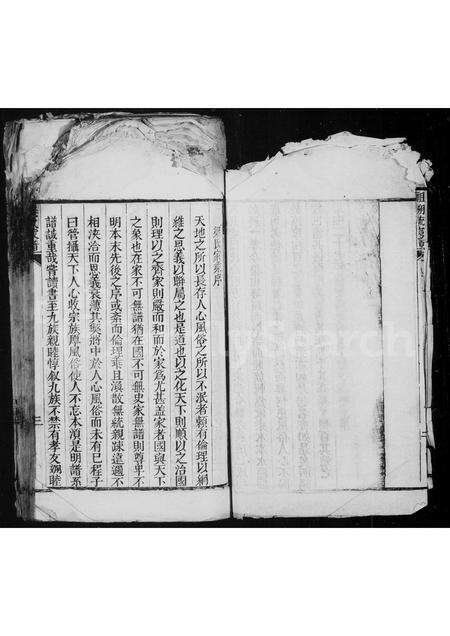 氏家乘序
天地之所以長存人心風俗之所以不泯者賴有倫理以綱
維之恩義以聯屬之也是道也以之化天下則順以之治國
則理以之齊家則嚴而和而於家為尤甚蓋家者國與天下
之槷也在家不可無譜猶在國不可無史家無譜則尊卑不
明本末先後之序或紊而倫理乖且渙散無統親疎遠邇不
相浹洽而恩義衰薄其弊將中於人心風俗而未有已程子
曰管攝天下人心收宗族厚風俗使人不忘本須是明譜系
譜誠重哉嘗讀書至九族親睦惇敘九族不禁有孝友婣睦
三